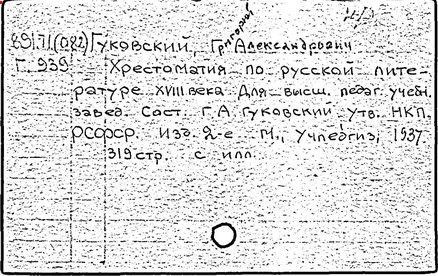 891.71(082) Гуковский, Григорий Александрович
Г. 939 Хрестоматия по русской лите-
ратуре XVIII века. Для высш. педаг. учебн.
завед. Сост. Г. А. Гуковский. Утв. НКП.
РСФСР. Изд. 2-е М., Учпедгиз, 1937
319 стр. с илл.